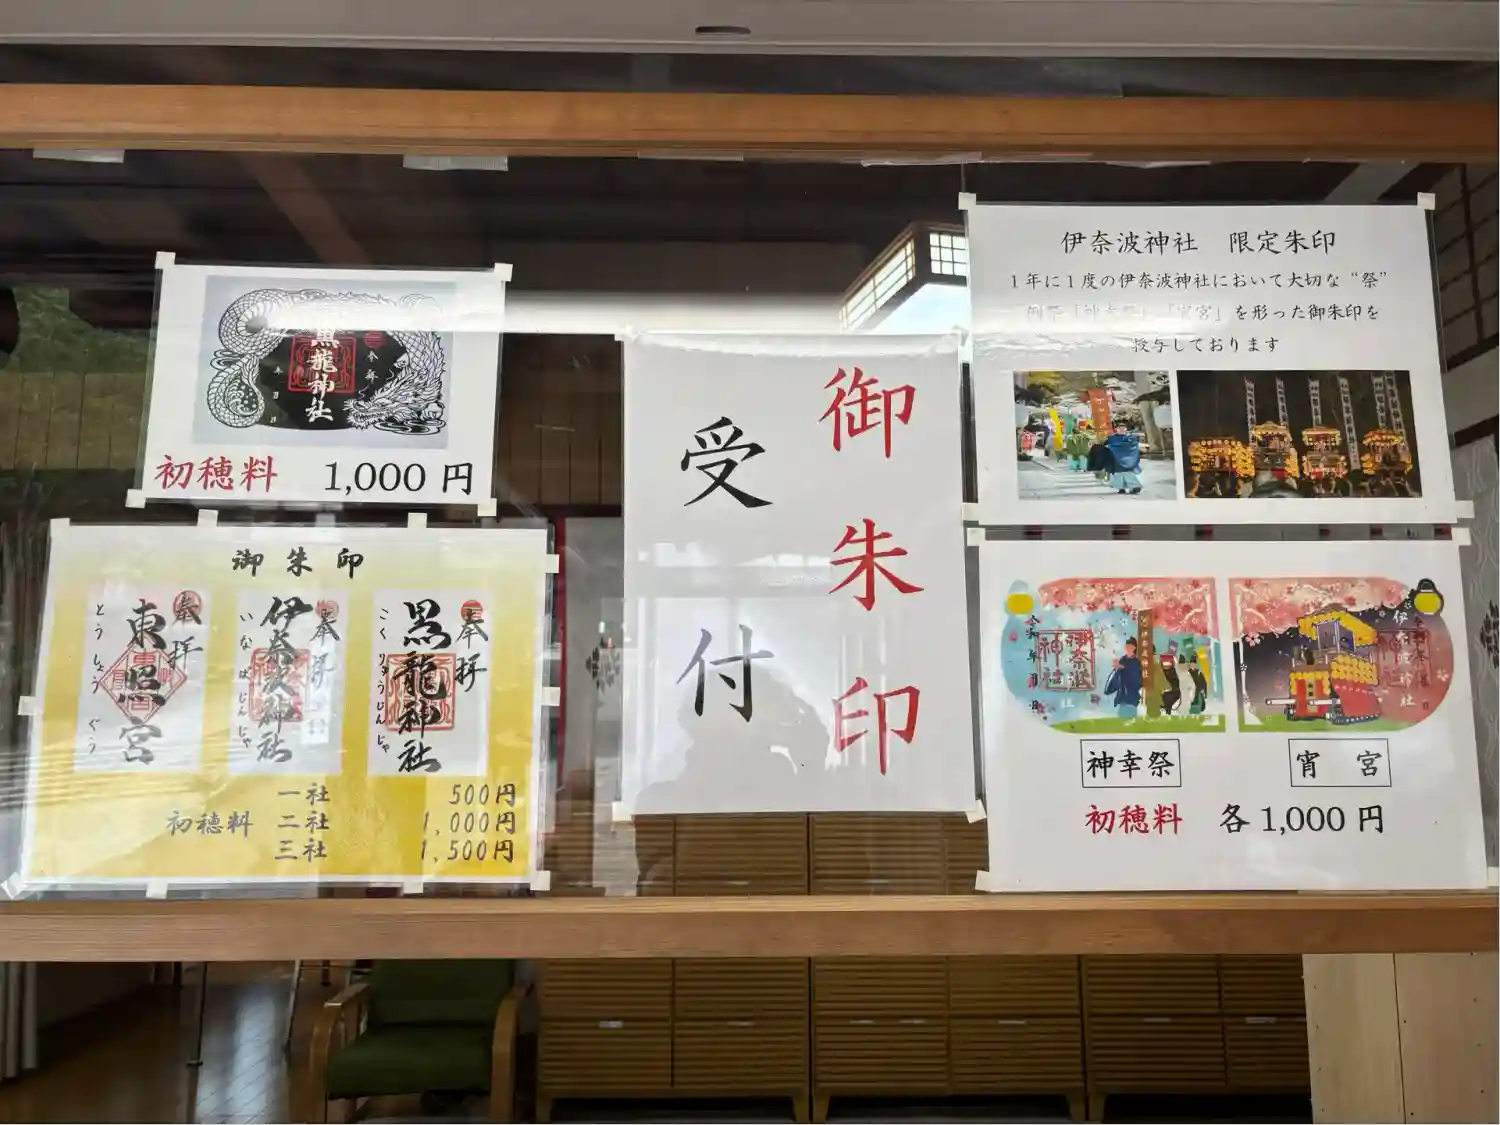 黒龍神社
令和 年 月 日
初穂料 1,000 円
御朱印
奉拝
東照宮
とうしょうぐう
奉拝
伊奈波神社
いなばじんじゃ
奉拝
黒龍神社
こくりゅうじんじゃ
一社 500円
初穂料 二社 1,000円
三社 1,500円
御朱印
受付
伊奈波神社 限定朱印
1年に1度の伊奈波神社において大切な“祭”
例祭「神幸祭」「宵宮」を形った御朱印を
授与しております
伊奈波神社
伊奈波神社
神幸祭
宵宮
初穂料 各 1,000 円